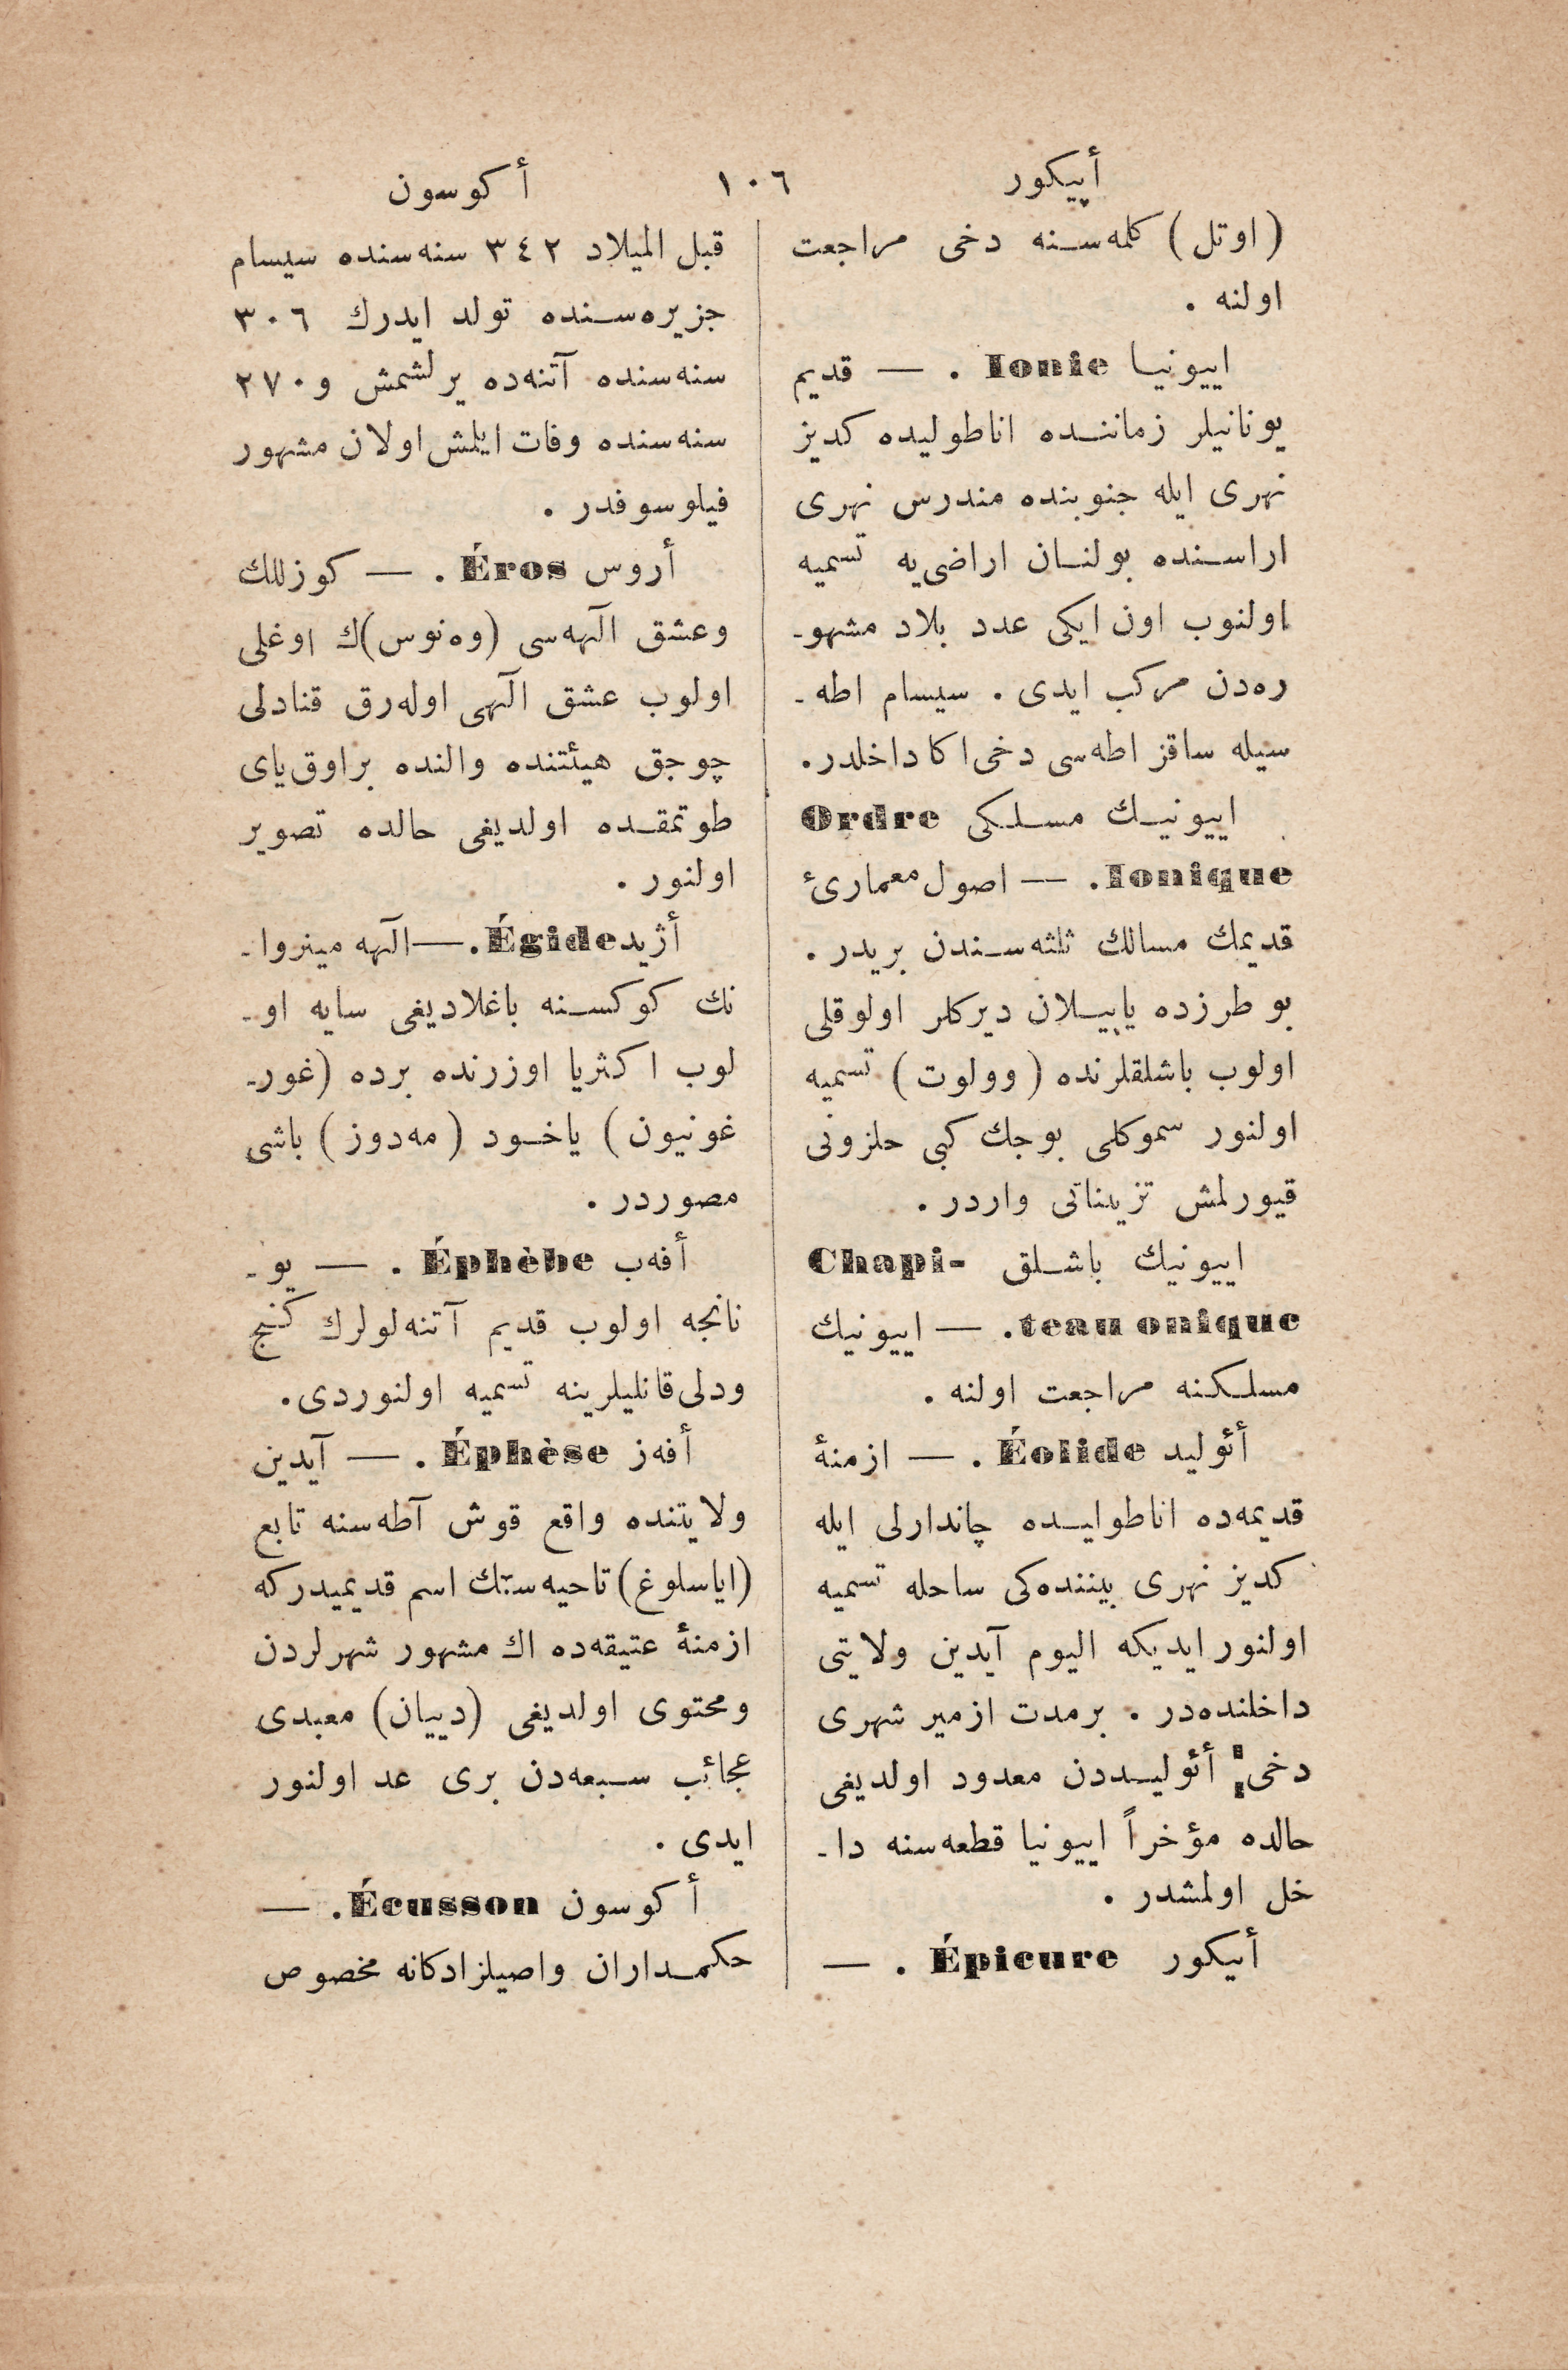 أپیكور
١٠٦
أكوسون
(اوتل) كلمه‌سنه دخی مراجعت
اولنه .
اییونیا Ionie . — قدیم
یونانیلر زماننده اناطولیده كدیز
نهری ایله جنوبنده مندرس نهری
اراسنده بولنان اراضی‌یه تسمیه
اولنوب اون ایكی عدد بلاد مشهو-
ره‌دن مركب ایدی . سیسام اطه-
سیله ساقز اطه‌سی دخی اكا داخلدر.
اییونیك مسلكی Ordre
Ionique. — اصول معماریٔ
قدیمك مسالك ثلثه‌سندن بریدر .
بو طرزده یاپیلان دیركلر اولوقلی
اولوب باشلقلرنده (وولوت) تسمیه
اولنور سموكلی بوجك كبی حلزونی
قیورلمش تزیناتی واردر .
اییونیك باشلق Chapi-
teau onique. — اییونیك
مسلكنه مراجعت اولنه .
أئولید Éolide . — ازمنهٔ
قدیمه‌ده اناطولیده چاندارلی ایله
كدیز نهری بیننده‌كی ساحله تسمیه
اولنور ایدیكه الیوم آیدین ولایتی
داخلنده‌در . برمدت ازمیر شهری
دخی أئولیددن معدود اولدیغی
حالده مؤخراً اییونیا قطعه‌سنه دا-
خل اولمشدر .
أپیكور Épicure . —
قبل المیلاد ٣٤٢ سنه‌سنده سیسام
جزیره‌سنده تولد ایدرك ٣٠٦
سنه‌سنده آتنه‌ده یرلشمش و ٢٧٠
سنه‌سنده وفات ایلمش اولان مشهور
فیلوسوفدر .
أروس Éros . — كوزللك
وعشق الٓهه‌سی (وه‌نوس)ك اوغلی
اولوب عشق الٓهی اوله‌رق قنادلی
چوجق هیئتنده والنده براوق یای
طوتمقده اولدیغی حالده تصویر
اولنور .
أژید Égide.—الٓهه مینروا-
نك كوكسنه باغلادیغی سایه او-
لوب اكثریا اوزرنده برده (غور-
غونیون) یاخود (مه‌دوز) باشی
مصوردر .
أفه‌ب Éphèbe . — یو-
نانجه اولوب قدیم آتنه‌لولرك كنج
ودلی قانلیلرینه تسمیه اولنوردی.
أفه‌ز Éphèse . — آیدین
ولایتنده واقع قوش آطه‌سنه تابع
(ایاسلوغ) ناحیه‌سنك اسم قدیمیدركه
ازمنهٔ عتیقه‌ده اك مشهور شهرلردن
ومحتوی اولدیغی (دییان) معبدی
عجائب سبعه‌دن بری عد اولنور
ایدی .
أكوسون Écusson. —
حكمداران واصیلزادكانه مخصوص